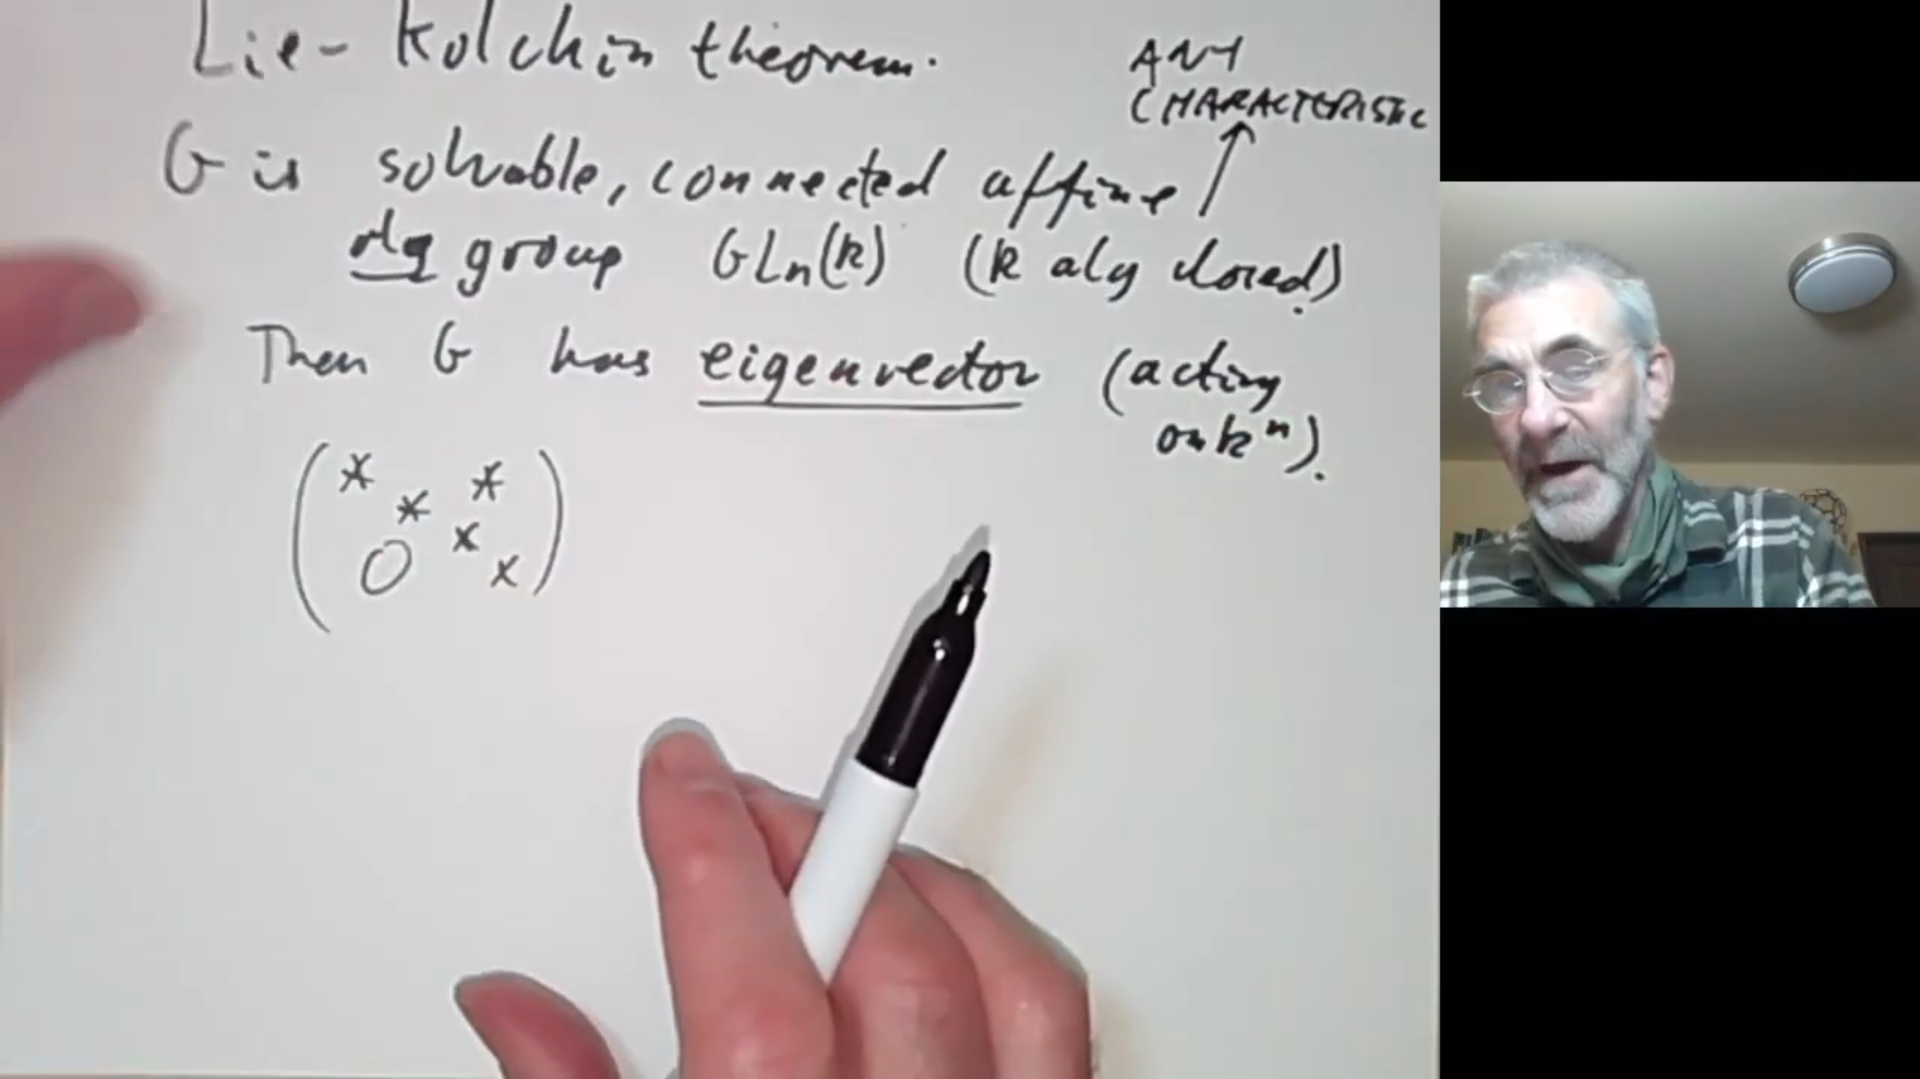 Lie-Kolchin theorem.
ANY
CHARACTERISTIC
G is solvable, connected affine
alg group GLn(k) (k alg closed).
Then G has eigenvector (acting
on kⁿ).
* * *
O * *